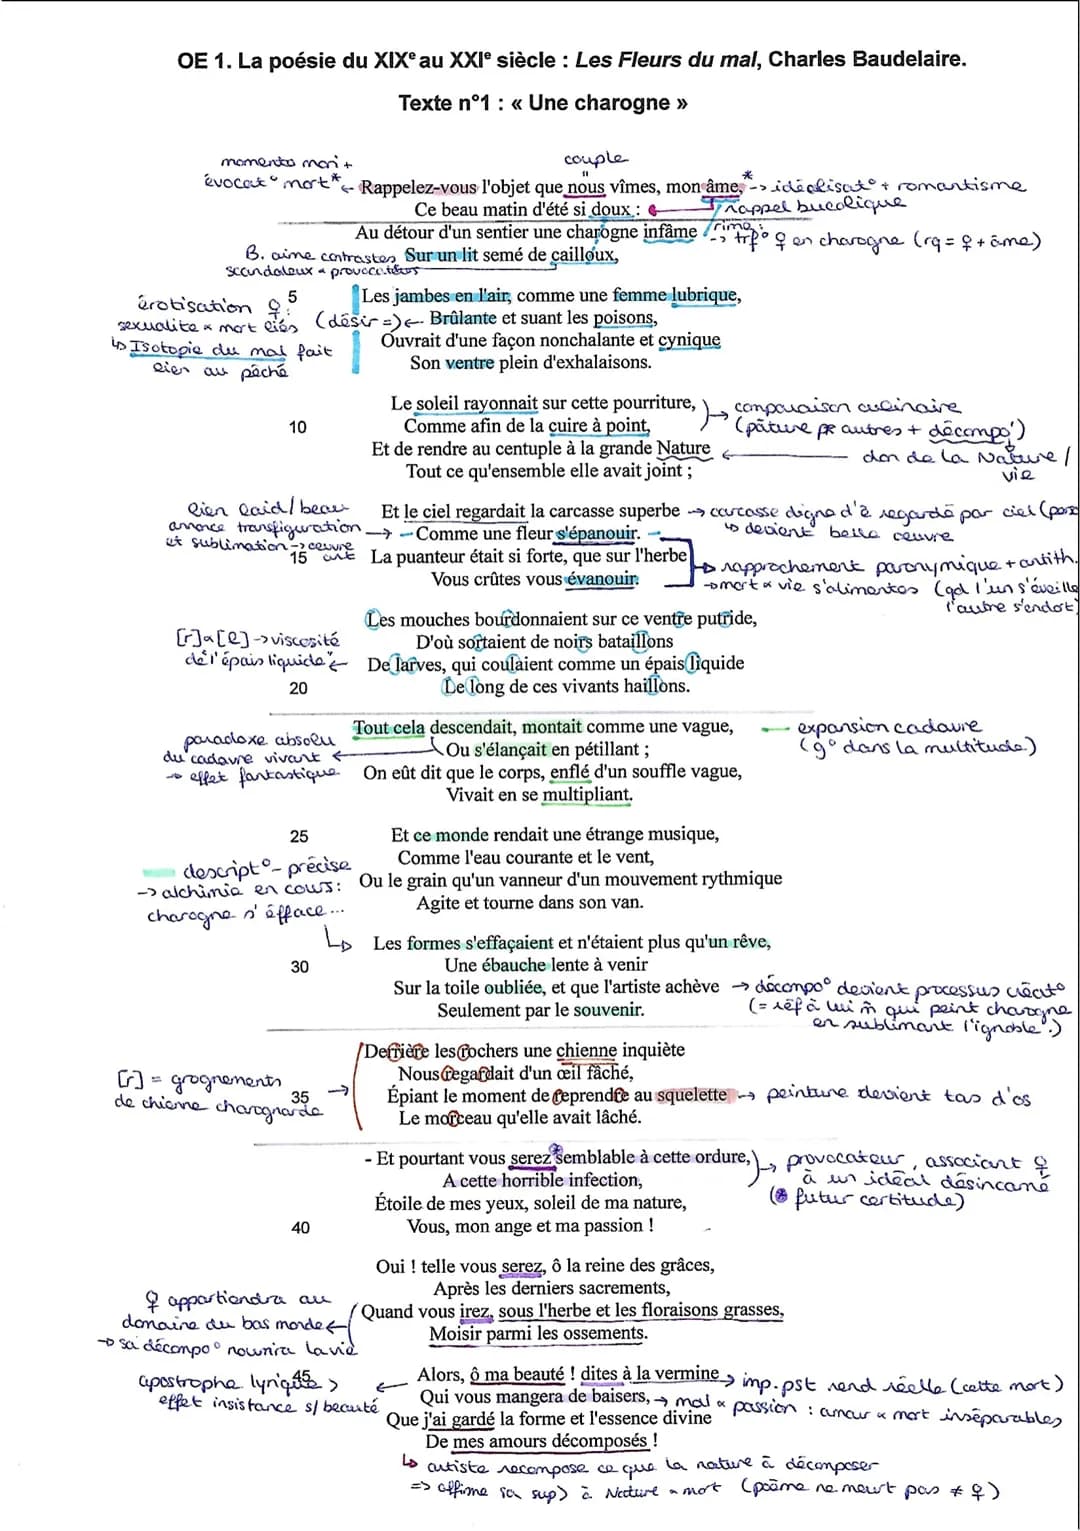 OE 1. La poésie du XIXe au XXIe siècle : Les Fleurs du mal, Charles Baudelaire.
Texte n°1 : « Une charogne »
momento mori +
évocat° mort*
couple
"
Rappelez-vous l'objet que nous vîmes, mon âme,
* -> idéalisat° + romantisme
Ce beau matin d'été si doux :
rappel bucolique
Au détour d'un sentier une charogne infâme
rime :
-> trf° ♀ en charogne (rq = ♀ + âme)
B. aime contrastes
scandaleux & provocateurs
Sur un lit semé de cailloux,
érotisation ♀ :
sexualité & mort liés
↳ Isotopie du mal fait
lien au péché
5
Les jambes en l'air, comme une femme lubrique,
(désir =) ← Brûlante et suant les poisons,
Ouvrait d'une façon nonchalante et cynique
Son ventre plein d'exhalaisons.
Le soleil rayonnait sur cette pourriture,
10
Comme afin de la cuire à point,
comparaison culinaire
(pâture pr autres + décompo°)
Et de rendre au centuple à la grande Nature
don de la Nature /
vie
Tout ce qu'ensemble elle avait joint ;
lien laid/beau
annonce transfiguration
et sublimation -> œuvre
art
Et le ciel regardait la carcasse superbe
→ carcasse digne d'ê regardé par ciel
↳ devient belle œuvre
Comme une fleur s'épanouir.
15
La puanteur était si forte, que sur l'herbe
Vous crûtes vous évanouir.
rapprochement paronymique + antith.
→ mort & vie s'alimentes (qd l'un s'éveille
l'autre s'endort)
Les mouches bourdonnaient sur ce ventre putride,
[r] & [l] -> viscosité
de l'épais liquide
D'où sortaient de noirs bataillons
De larves, qui coulaient comme un épais liquide
20
Le long de ces vivants haillons.
Tout cela descendait, montait comme une vague,
expansion cadavre
(g° dans la multitude)
paradoxe absolu
du cadavre vivant
→ effet fantastique
Ou s'élançait en pétillant ;
On eût dit que le corps, enflé d'un souffle vague,
Vivait en se multipliant.
25
Et ce monde rendait une étrange musique,
Comme l'eau courante et le vent,
descript° précise
-> alchimie en cours :
charogne s'éfface...
Ou le grain qu'un vanneur d'un mouvement rythmique
Agite et tourne dans son van.
Les formes s'effaçaient et n'étaient plus qu'un rêve,
30
Une ébauche lente à venir
Sur la toile oubliée, et que l'artiste achève
→ décompo° devient processus créat°
(= réf à lui m̂ qui peint charogne
en sublimant l'ignoble.)
Seulement par le souvenir.
Derrière les rochers une chienne inquiète
[r] = grognements
de chienne charognarde
Nous regardait d'un œil fâché,
35
Épiant le moment de reprendre au squelette
→ peinture devient tas d'os
Le morceau qu'elle avait lâché.
- Et pourtant vous serez semblable à cette ordure,
provocateur, associant ♀
à un idéal désincarné
(* futur certitude)
A cette horrible infection,
Étoile de mes yeux, soleil de ma nature,
40
Vous, mon ange et ma passion !
Oui ! telle vous serez, ô la reine des grâces,
Après les derniers sacrements,
♀ appartiendra au
domaine du bas monde
→ sa décompo° nourrira la vie
Quand vous irez, sous l'herbe et les floraisons grasses,
Moisir parmi les ossements.
apostrophe lyrique >
effet insistance s/ beauté
45
Alors, ô ma beauté ! dites à la vermine
imp. pst rend réelle (cette mort)
Qui vous mangera de baisers,
→ mal & passion : amour & mort inséparables
Que j'ai gardé la forme et l'essence divine
De mes amours décomposés !
↳ artiste recompose ce que la nature a décomposer
=> affirme sa sup) à Nature & mort (poème ne meurt pas ≠ ♀)